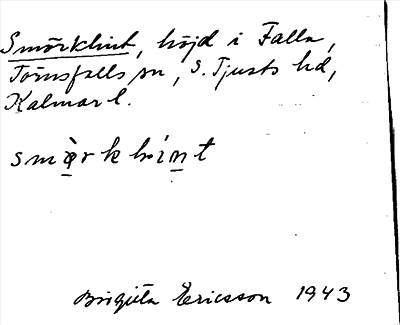 Smörklint, höjd i Falla,
Törnsfalls sn, S. Tjusts hd,
Kalmar l.
smö̀rklín̠t
Birgitta Ericsson 1943